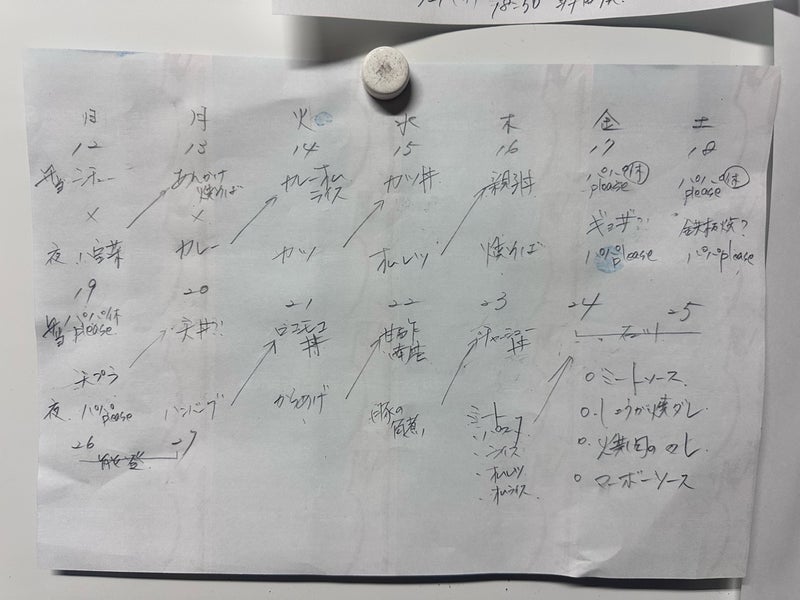 18:50
日 月 火 水 木 金 土
12 13 14 15 16 17 18
弁当 シチュー あんかけ 焼そば カレーオム ライス カツ丼 親子丼 パパ休 please パパ休 please
× × ギョーザ? 鉄板焼?
夜 八宝菜 カレー カツ オムレツ 焼そば パパplease パパplease
19 20 21 22 23 24 25
弁当 パパ休 please 天丼?! ロコモコ 丼 チャーシュー 丼
天プラ
夜 パパplease ハンバーグ からあげ 豚の 角煮 ミート
ライス
オムレツ
オムライス
○ミートソース
○しょうが焼ダレ
○焼肉のタレ
○マーボーソース
26 27